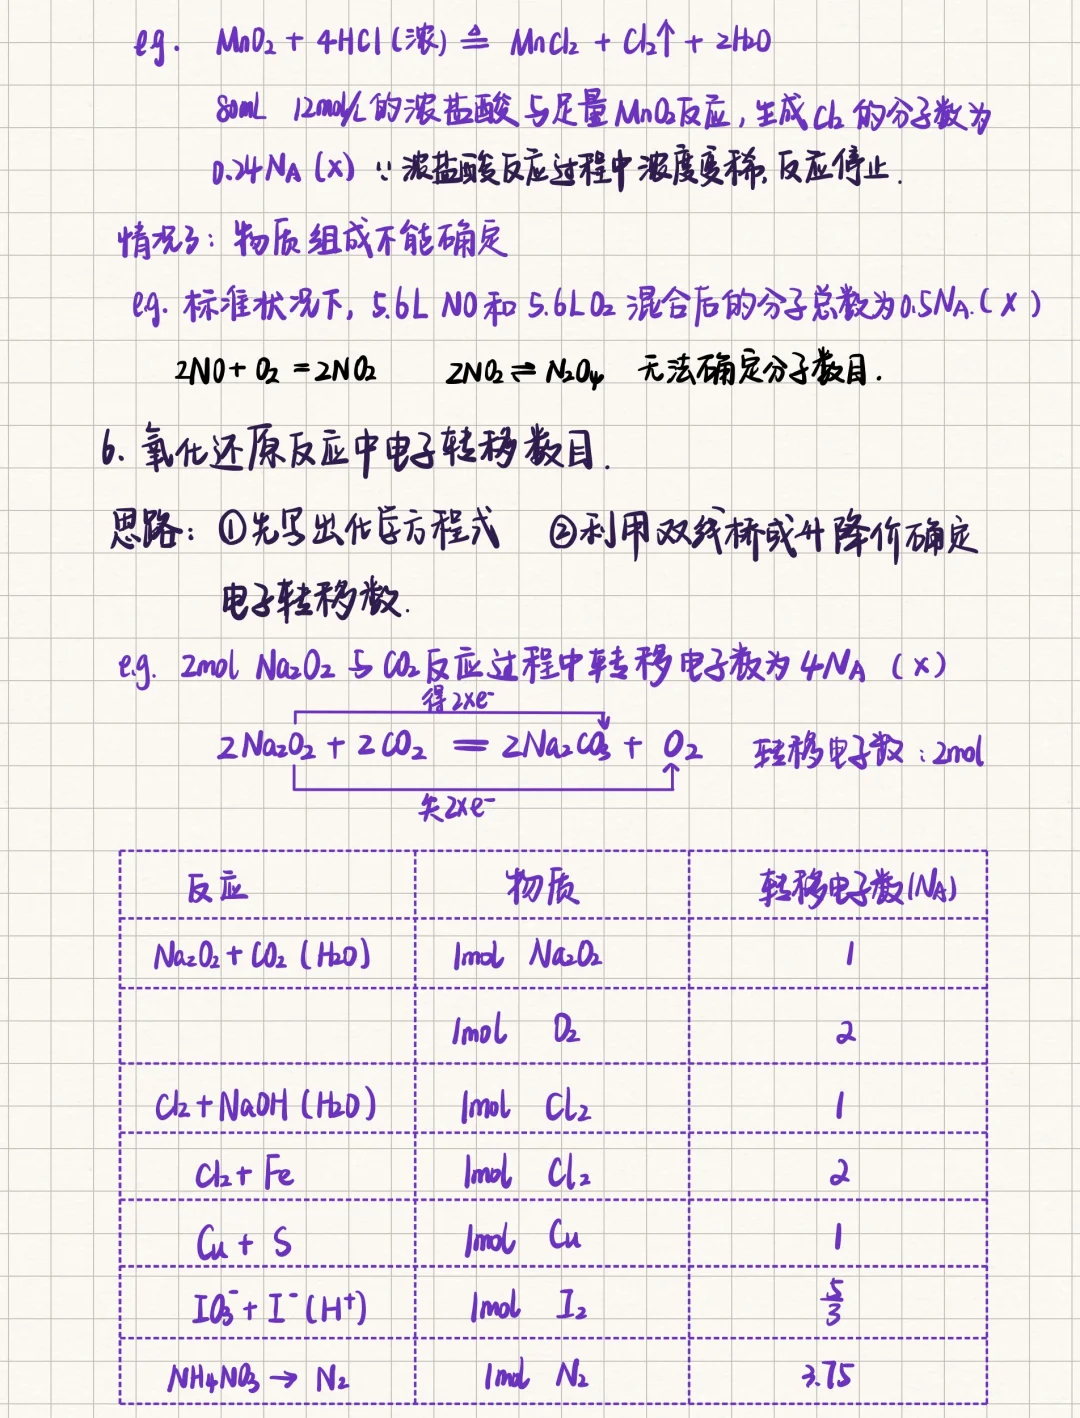 eg. MnO₂ + 4HCl(浓) ≜ MnCl₂ + Cl₂↑ + 2H₂O
80mL 12mol/L的浓盐酸与足量MnO₂反应,生成Cl₂的分子数为
0.24NA (×) ∵浓盐酸反应过程中浓度变稀,反应停止.
情况3: 物质组成不能确定
eg. 标准状况下, 5.6L NO和5.6LO₂混合后的分子总数为0.5NA.(×)
2NO+O₂=2NO₂ 2NO₂⇌N₂O₄ 无法确定分子数目.
6. 氧化还原反应中电子转移数目.
思路: ①先写出化学方程式 ②利用双线桥或升降价确定
电子转移数.
e.g. 2mol Na₂O₂与CO₂反应过程中转移电子数为4NA (×)
得2×e⁻
2Na₂O₂ + 2CO₂ = 2Na₂CO₃ + O₂ 转移电子数:2mol
失2×e⁻
反应 物质 转移电子数(NA)
Na₂O₂+CO₂(H₂O) 1mol Na₂O₂ 1
1mol O₂ 2
Cl₂+NaOH(H₂O) 1mol Cl₂ 1
Cl₂+Fe 1mol Cl₂ 2
Cu+S 1mol Cu 1
IO₃⁻+I⁻(H⁺) 1mol I₂ 5/3
NH₄NO₃→N₂ 1mol N₂ 3.75